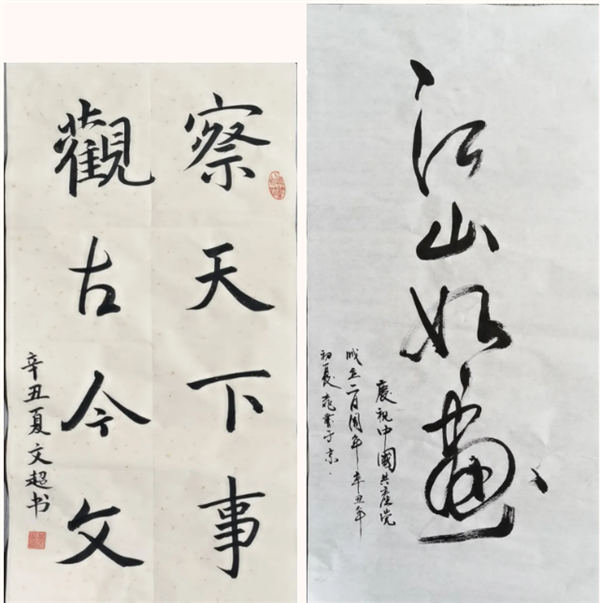 察天下事
觀古今文
辛丑夏文超书
江山如画
庆祝中國共产党
成立一百周年辛丑年
初夏